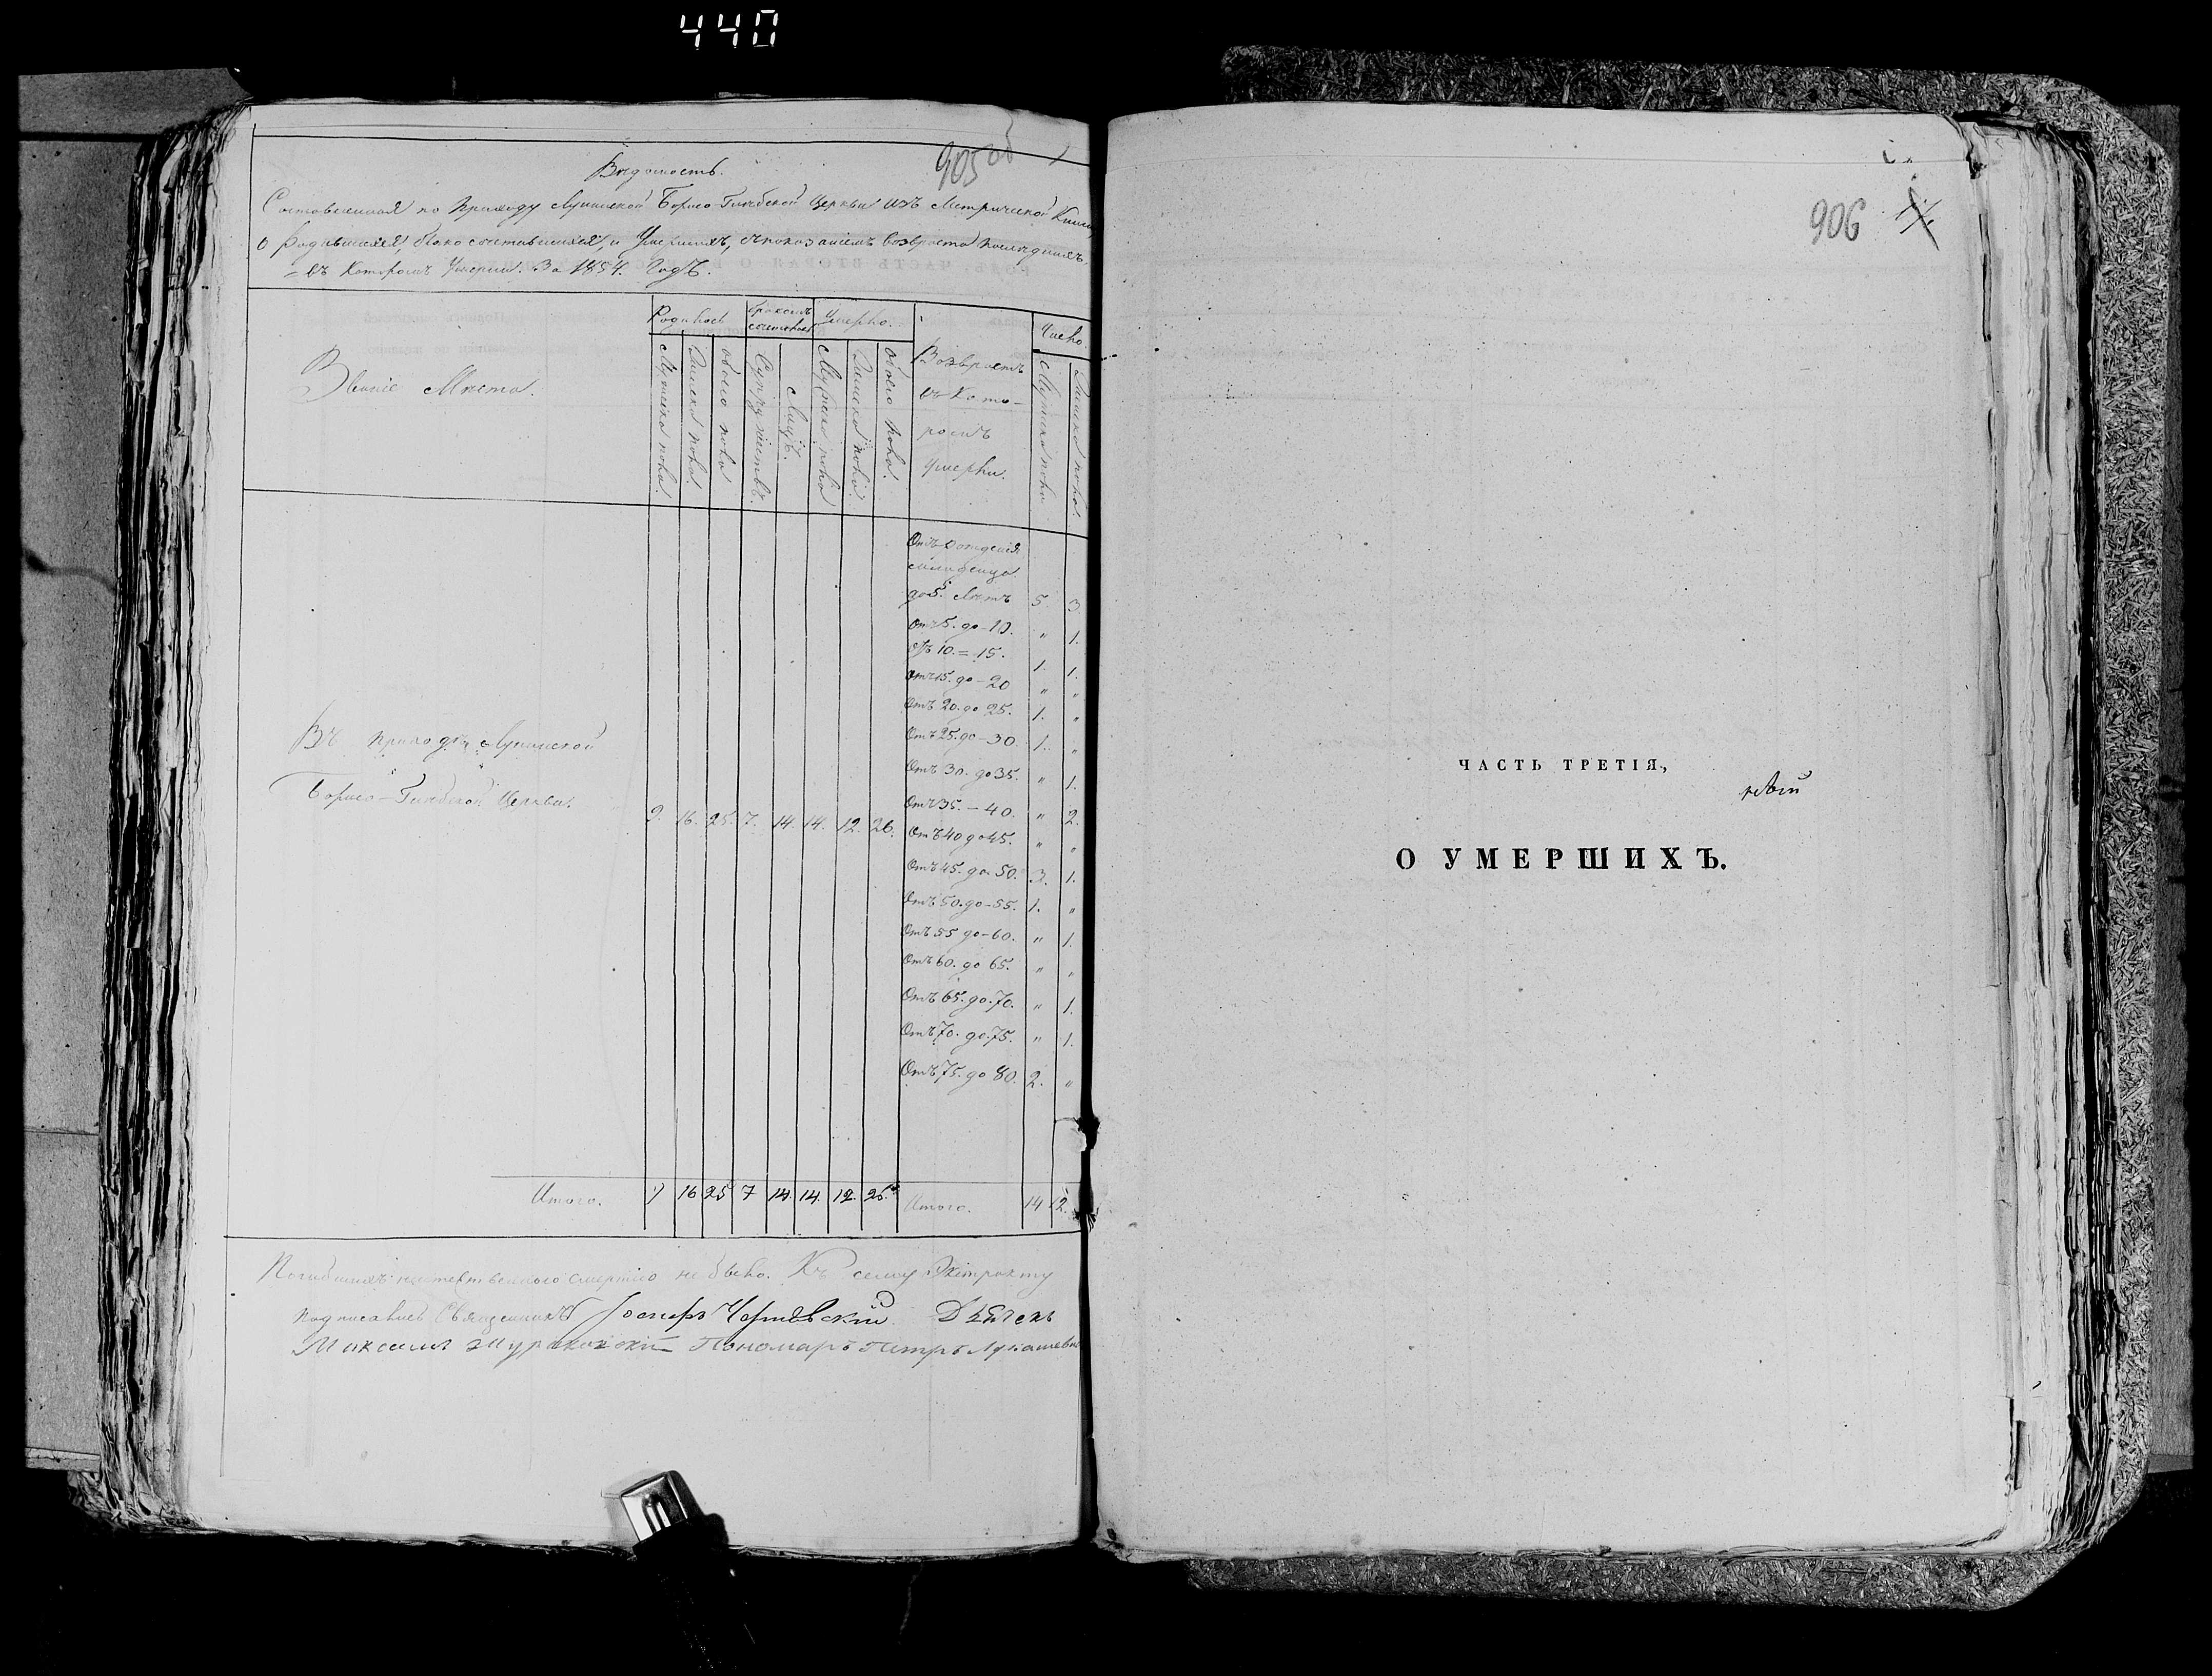 440
905 об
Вѣдомость.
Составленная по приходу Лунинской Борисо-Глѣбской Церкви изъ Метрической Книги
о родившихся, бракосочетавшихся, и Умершихъ, съ показаніемъ возвраста послѣднихъ,
въ которомъ Умерли. За 1854. Годъ.
Званіе Мѣста.
Родилось
бракомъ сочеталось
Умерло.
Возврастъ въ Которомъ умерли.
Число
Мужеска пола.
Женска пола.
обоего пола
Супружествъ.
Лицъ.
Мужеска пола
Женска пола.
обоего пола.
Мужеска пола
Женска пола.
Отъ рожденія
младенца
до 5. Лѣтъ 5 3
Отъ 5. до - 10. " 1.
Отъ 10. = 15. 1. 1.
Отъ 15. до - 20 " "
Отъ 20. до 25. 1. "
Отъ 25. до - 30. 1. "
Отъ 30. до 35. " 1.
Отъ 35. - 40. " 2.
Отъ 40 до 45. " "
Отъ 45. до 50. 3. 1.
Отъ 50. до - 55. 1. "
Отъ 55 до - 60. " 1.
Отъ 60. до 65. " "
Отъ 65. до. 70. " 1.
Отъ 70. до. 75. " 1.
Отъ 75. до 80. 2. "
Въ приходѣ Лунинской
Борисо-Глѣбской Церкви. 9. 16. 25. 7. 14. 14. 12. 26.
Итого. 9 16 25 7 14. 14. 12. 26. Итого. 14 12.
Погибшихъ неестественною смертію не было. Къ сему Экстракту
подписались Священникъ Іосифъ Дьячекъ
Максимъ Пономарь Петръ
906
ЧАСТЬ ТРЕТІЯ,
О УМЕРШИХЪ.